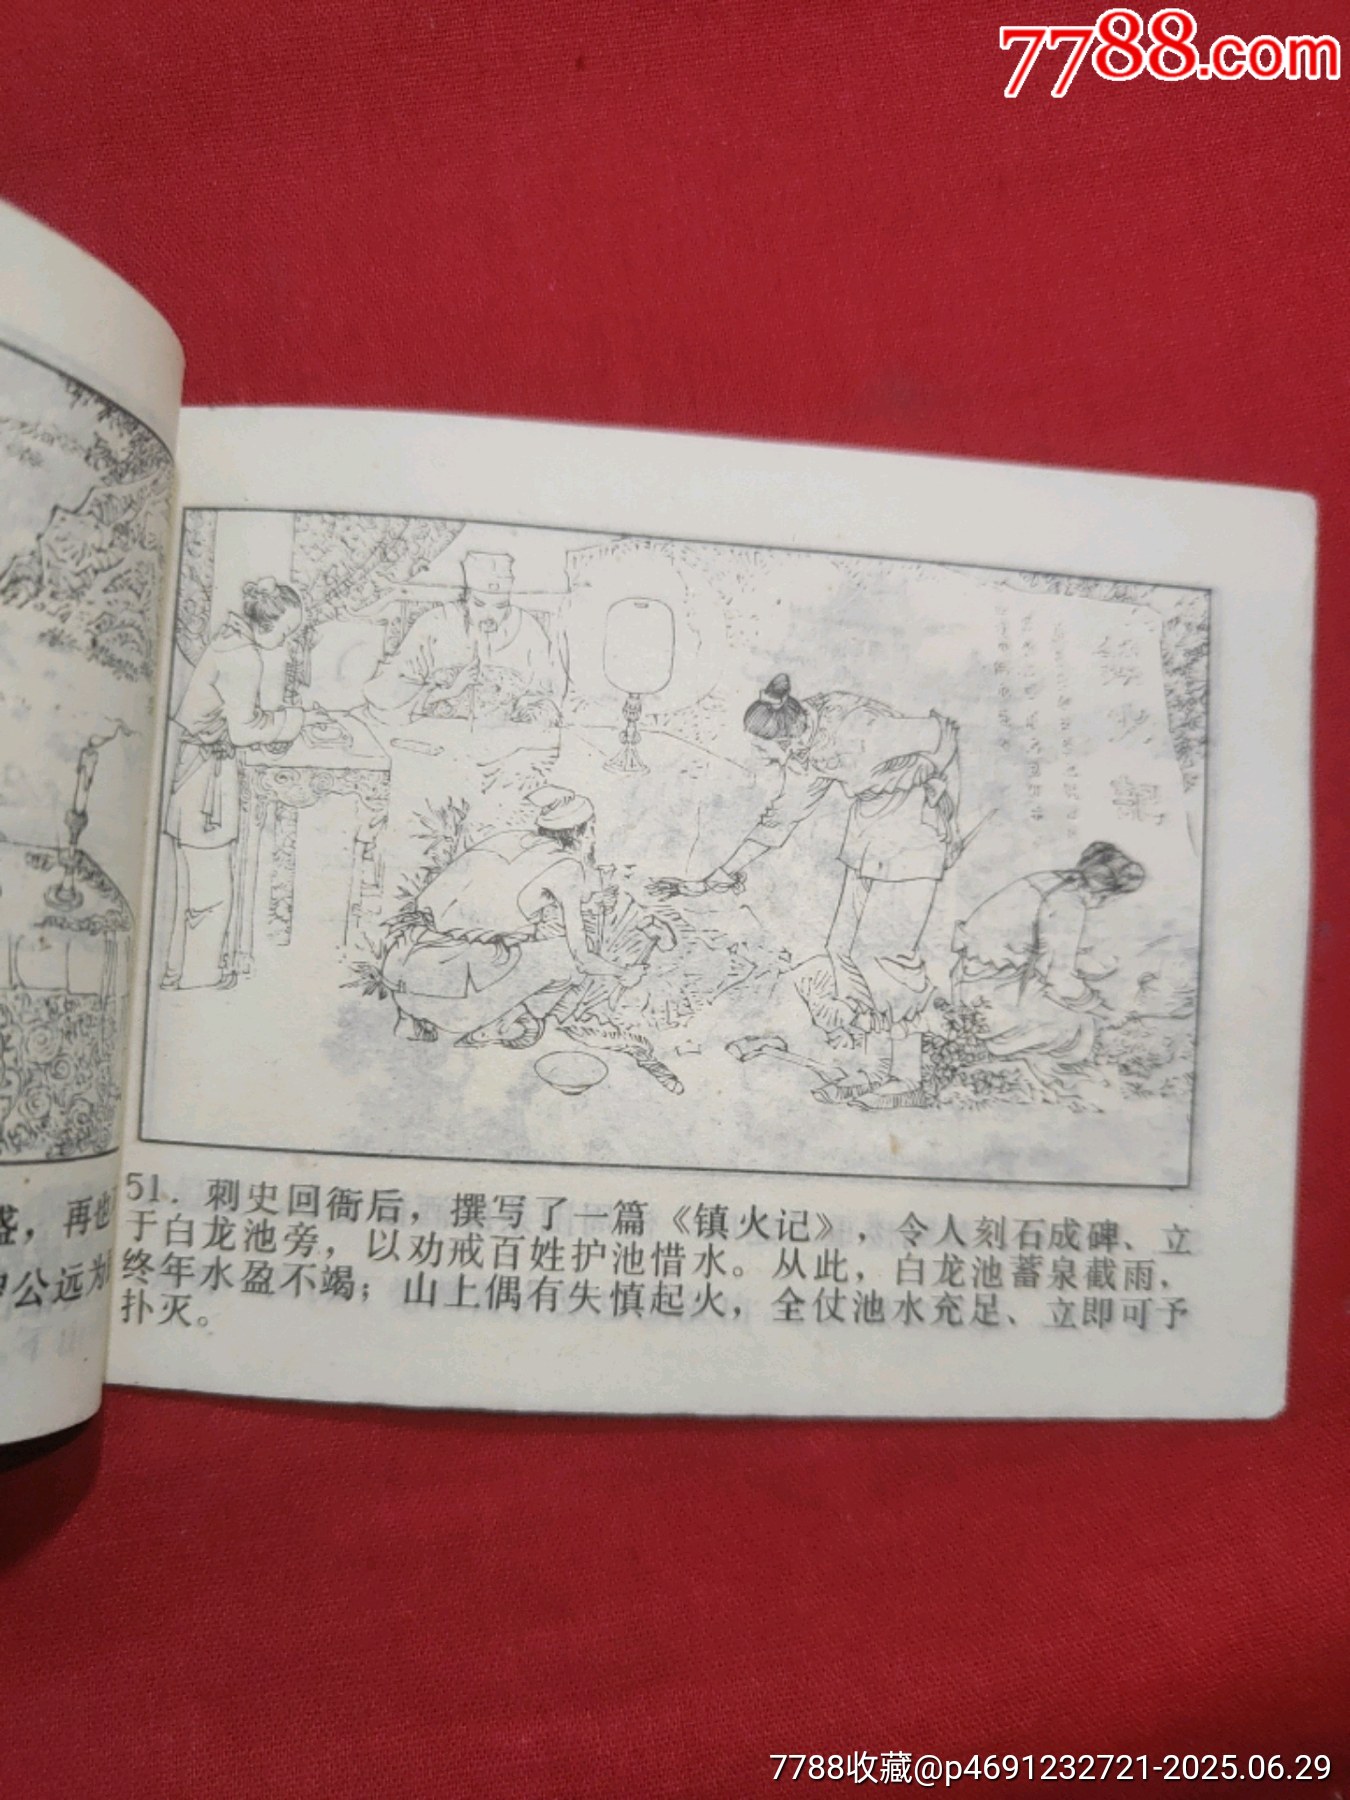 7788.com
盛，再也
公远为
51．刺史回衙后，撰写了一篇《镇火记》，令人刻石成碑、立
于白龙池旁，以劝戒百姓护池惜水。从此，白龙池蓄泉截雨，
终年水盈不竭；山上偶有失慎起火，全仗池水充足、立即可予
扑灭。
7788收藏@p4691232721-2025.06.29